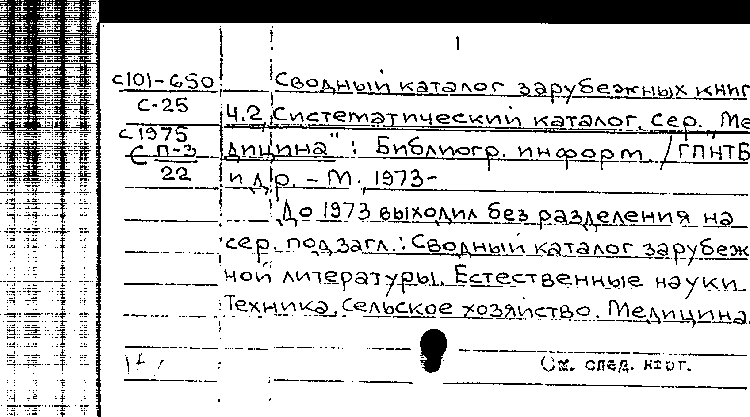 1
с101-650 Сводный каталог зарубежных книг
С-25 Ч.2, Систематический каталог. Сер. "Ме
с1975 дицина": Библиогр. информ. / ГПНТБ
С П-3
22 и др. – М., 1973-
До 1973 выходил без разделения на
сер. под загл.: Сводный каталог зарубеж
ной литературы. Естественные науки.
Техника. Сельское хозяйство. Медицина
См. след. карт.